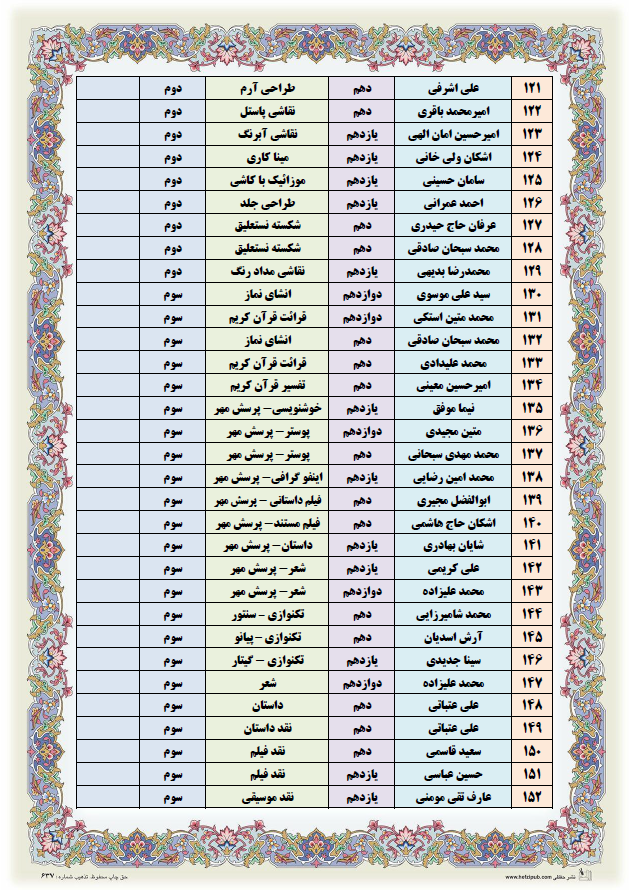 ۱۲۱ علی اشرفی دهم طراحی آرم دوم
۱۲۲ امیرمحمد باقری دهم نقاشی پاستل دوم
۱۲۳ امیرحسین امان الهی یازدهم نقاشی آبرنگ دوم
۱۲۴ اشکان ولی خانی یازدهم مینا کاری دوم
۱۲۵ سامان حسینی یازدهم موزائیک با کاشی دوم
۱۲۶ احمد عمرانی یازدهم طراحی جلد دوم
۱۲۷ عرفان حاج حیدری دهم شکسته نستعلیق دوم
۱۲۸ محمد سبحان صادقی دهم شکسته نستعلیق دوم
۱۲۹ محمدرضا بدیهی یازدهم نقاشی مداد رنگ دوم
۱۳۰ سید علی موسوی دوازدهم انشای نماز سوم
۱۳۱ محمد متین استکی دوازدهم قرائت قرآن کریم سوم
۱۳۲ محمد سبحان صادقی دهم انشای نماز سوم
۱۳۳ محمد علیدادی دهم قرائت قرآن کریم سوم
۱۳۴ امیرحسین معینی دهم تفسیر قرآن کریم سوم
۱۳۵ نیما موفق یازدهم خوشنویسی– پرسش مهر سوم
۱۳۶ متین مجیدی دوازدهم پوستر– پرسش مهر سوم
۱۳۷ محمد مهدی سبحانی دهم پوستر– پرسش مهر سوم
۱۳۸ محمد امین رضایی یازدهم اینفو گرافی– پرسش مهر سوم
۱۳۹ ابوالفضل مجیری دهم فیلم داستانی – پرسش مهر سوم
۱۴۰ اشکان حاج هاشمی دهم فیلم مستند– پرسش مهر سوم
۱۴۱ شایان بهادری یازدهم داستان– پرسش مهر سوم
۱۴۲ علی کریمی یازدهم شعر– پرسش مهر سوم
۱۴۳ محمد علیزاده دوازدهم شعر– پرسش مهر سوم
۱۴۴ محمد شامیرزایی دهم تکنوازی – سنتور سوم
۱۴۵ آرش اسدیان دهم تکنوازی – پیانو سوم
۱۴۶ سینا جدیدی یازدهم تکنوازی – گیتار سوم
۱۴۷ محمد علیزاده دوازدهم شعر سوم
۱۴۸ علی عتباتی دهم داستان سوم
۱۴۹ علی عتباتی دهم نقد داستان سوم
۱۵۰ سعید قاسمی دهم نقد فیلم سوم
۱۵۱ حسین عباسی یازدهم نقد فیلم سوم
۱۵۲ عارف تقی مومنی یازدهم نقد موسیقی سوم
نشر حفظی www.hefzipub.com
حق چاپ محفوظ. تذهیب شماره: ۶۳۷